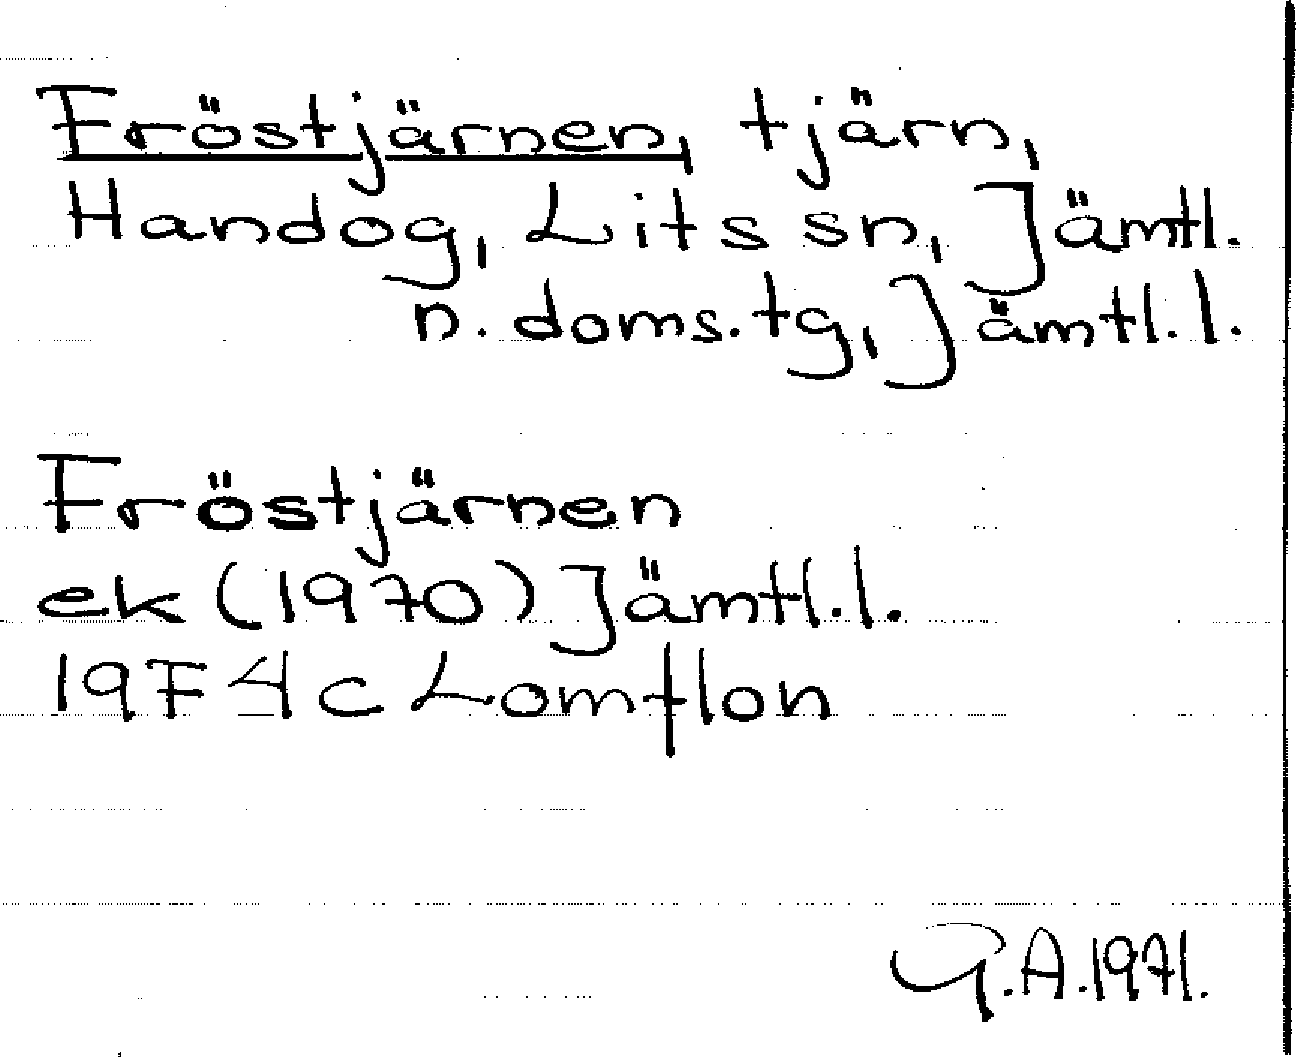 Fröstjärnen, tjärn,
Handog, Lits sn, Jämtl.
n. doms. tg, Jämtl. l.
Fröstjärnen
ek (1970) Jämtl. l.
19F 4c Lomflon
G. A. 1971.